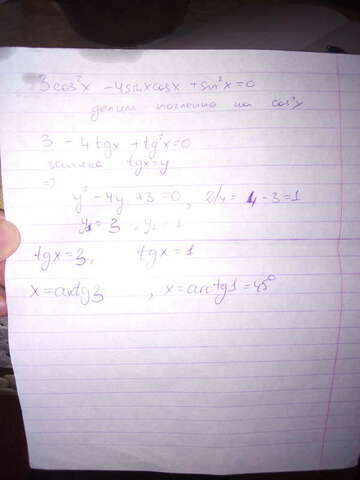 3cos²x - 4sinxcosx + sin²x = 0
делим почленно на cos²x
3 - 4tgx + tg²x = 0
замена tgx = y
=>
y² - 4y + 3 = 0, D/4 = 4 - 3 = 1
y₁ = 3, y₂ = 1
tgx = 3, tgx = 1
x = arctg3, x = arctg1 = 45°